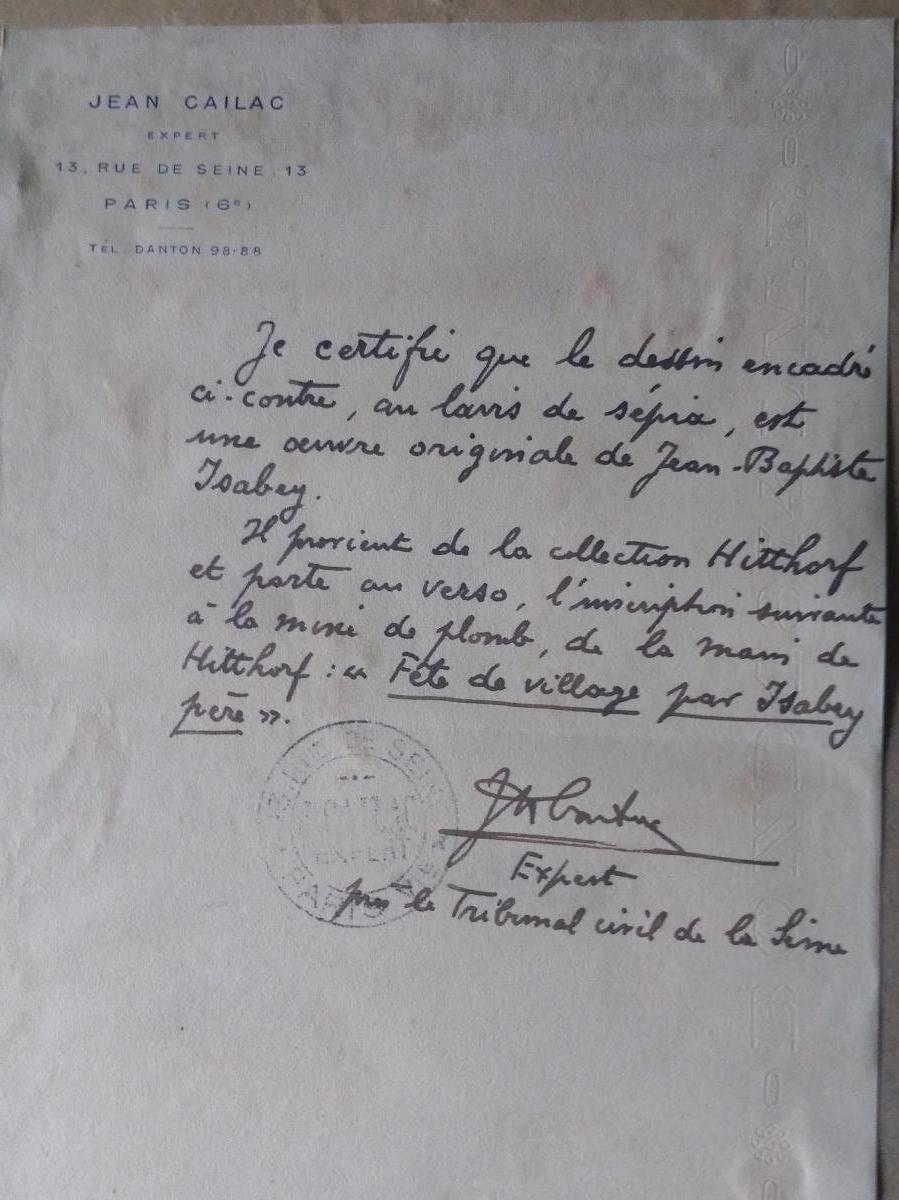 JEAN CAILAC
EXPERT
13, RUE DE SEINE 13
PARIS (6e)
TÉL. DANTON 98-88
Je certifie que le dessin encadré
ci-contre, au lavis de sépia, est
une œuvre originale de Jean-Baptiste
Isabey.
Il provient de la collection Hitthorf
et porte au verso, l'inscription suivante
à la mine de plomb, de la main de
Hitthorf : « Fête de village par Isabey
père ».
Expert
près le Tribunal civil de la Seine
RUE DE SEINE
EXPERT
PARIS